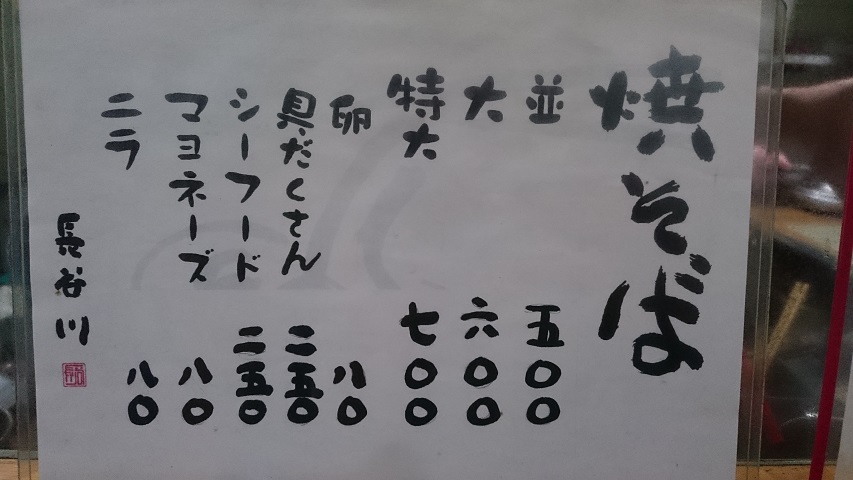 焼そば
並 五〇〇
大 六〇〇
特大 七〇〇
卵 八〇
具だくさん 二五〇
シーフード 二五〇
マヨネーズ 八〇
ニラ 八〇
長谷川